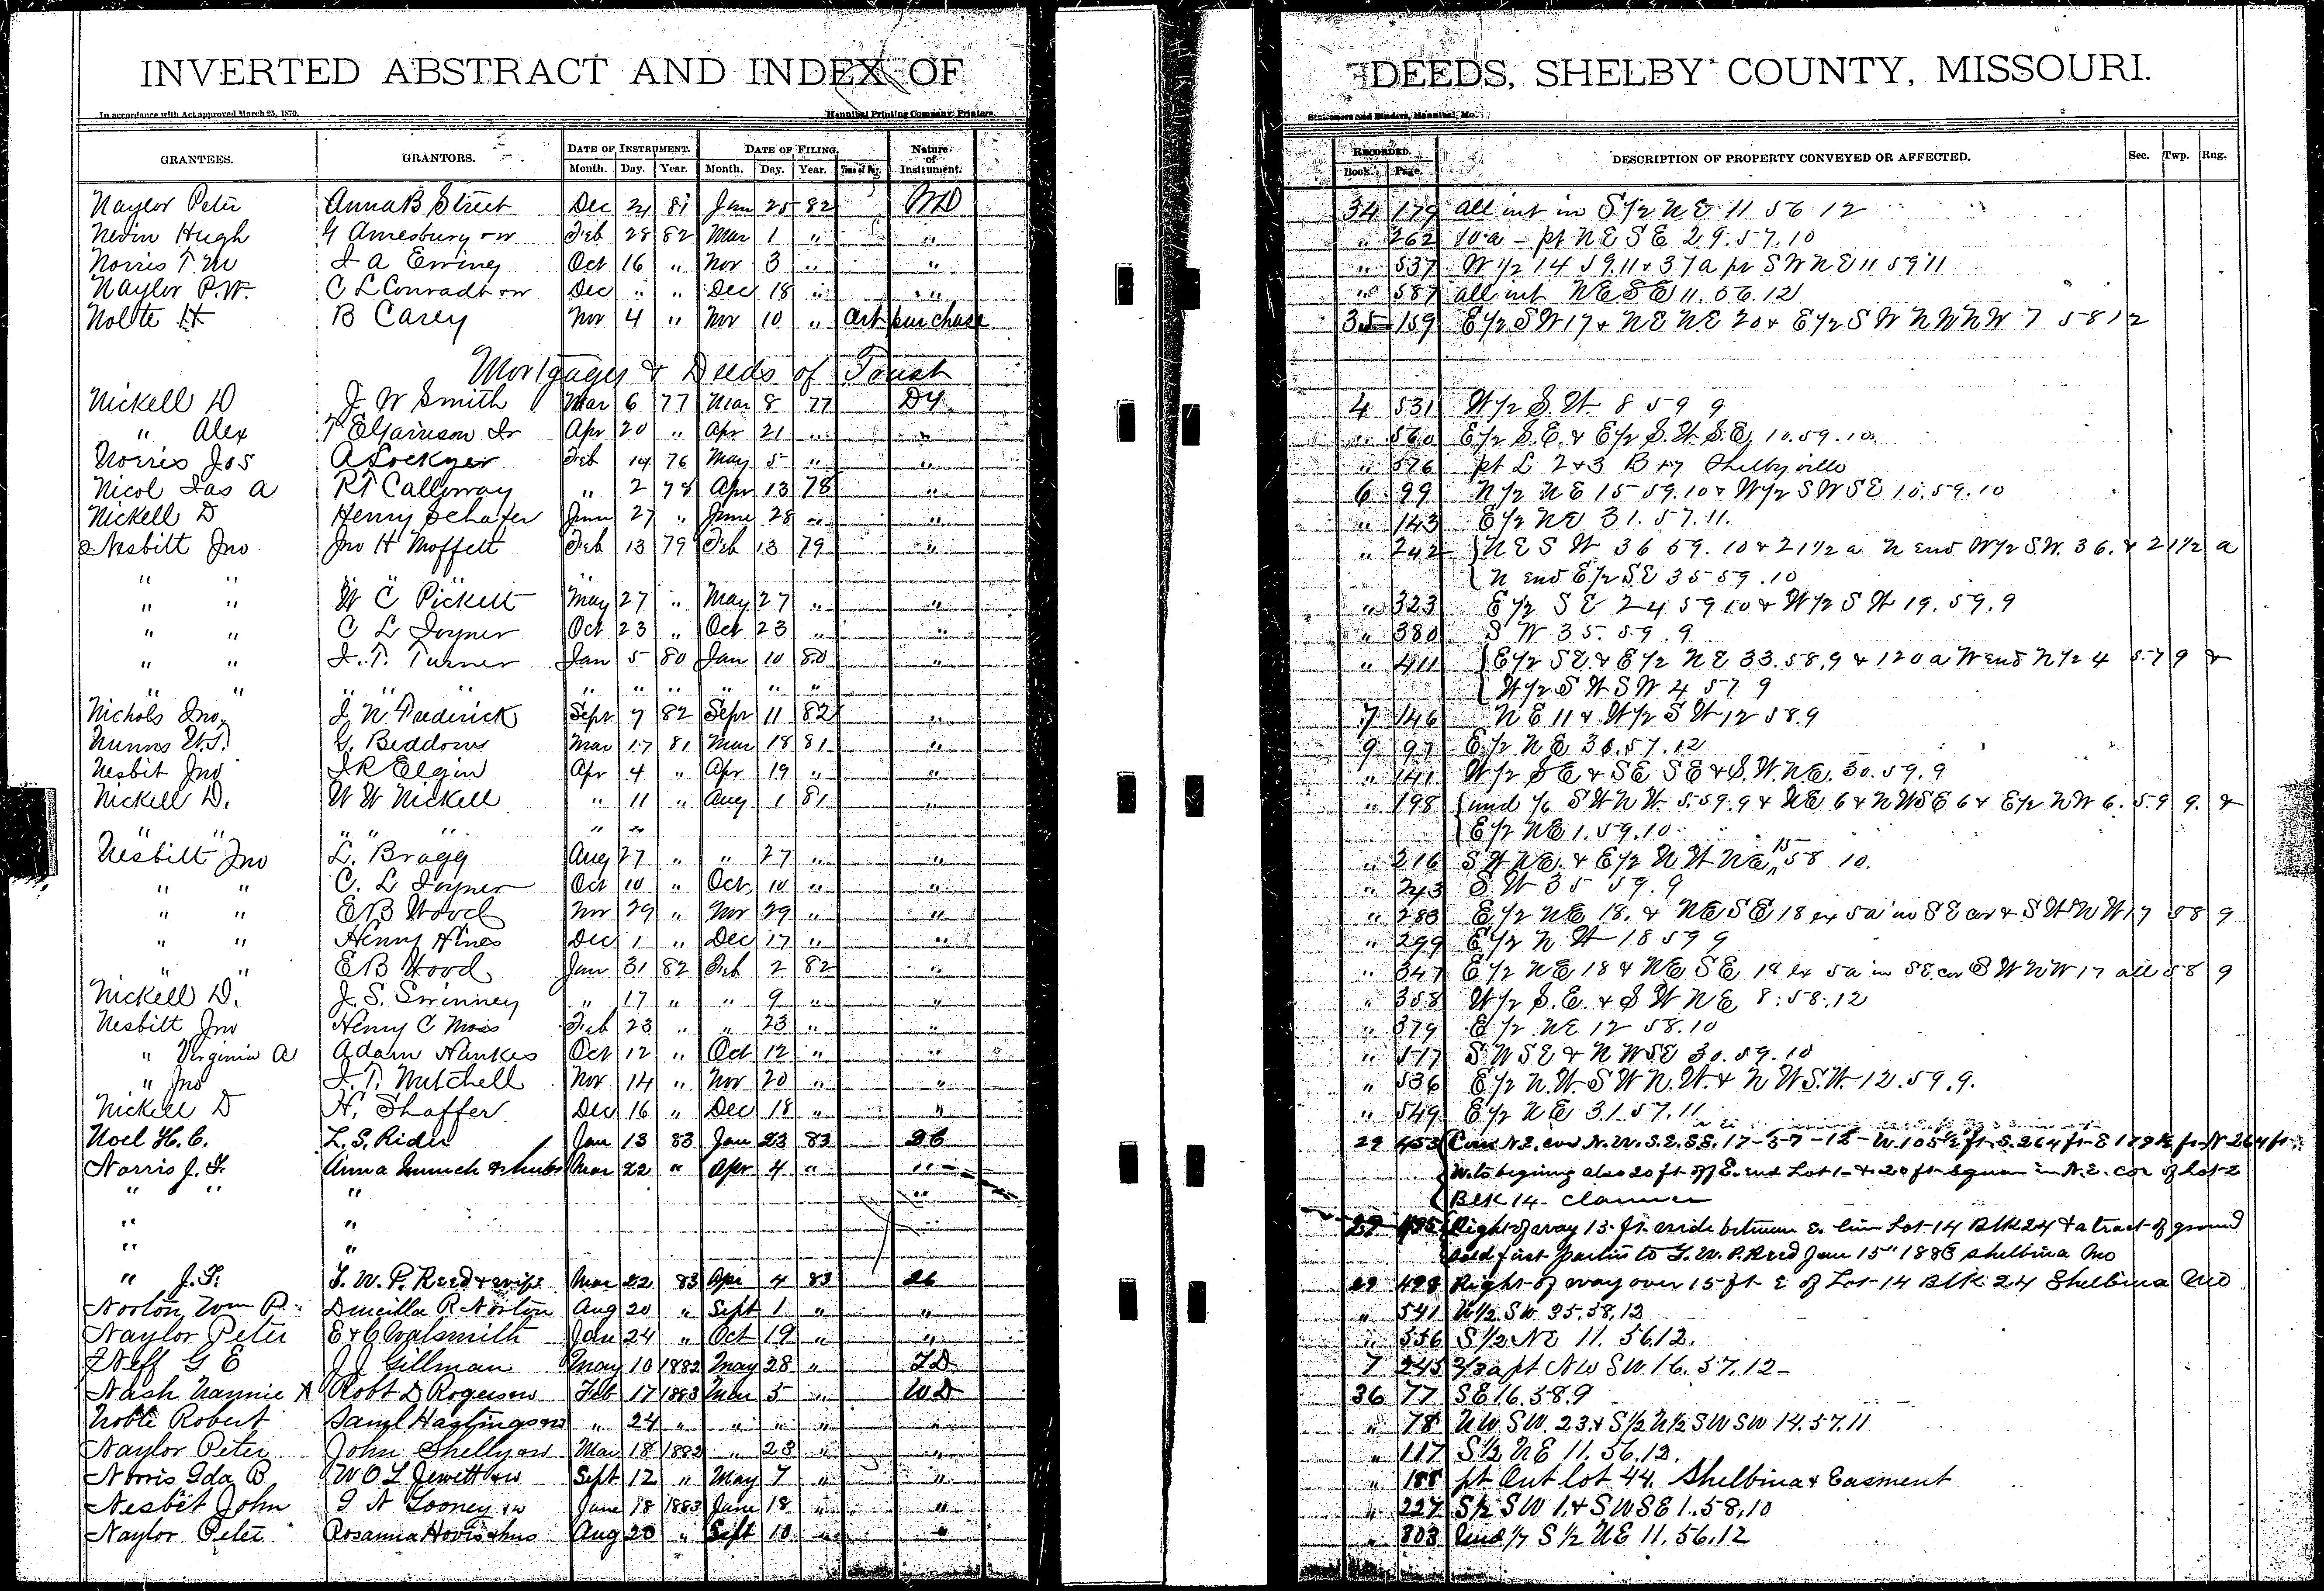 INVERTED ABSTRACT AND INDEX OF DEEDS, SHELBY COUNTY, MISSOURI.
In accordance with Act approved March 25, 1870. Hannibal Printing Company, Printers, Stationers and Binders, Hannibal, Mo.
GRANTEES. GRANTORS. DATE OF INSTRUMENT. DATE OF FILING. Nature of Instrument. RECORDED. DESCRIPTION OF PROPERTY CONVEYED OR AFFECTED. Sec. Twp. Rng.
Month. Day. Year. Month. Day. Year. Time of Day. Book. Page.
Naylor Peter Anna B Street Dec 24 81 Jan 25 82 34 179 all int in S 1/2 N E 11 56 12
Nevin Hugh G Amesbury + w Feb 28 82 Mar 1 " " " 262 10 a - pt N E S E 29.57.10
Norris T. M J A Ewing Oct 16 " Nov 3 " " " 537 W 1/2 14 59.11 + 37 a pt S W N E 11 59 11
Naylor P. W. C L Conradt + w Dec " " Dec 18 " " " 587 all int N E S E 11.56.12
Nolte H B Carey Nov 4 " Nov 10 " Cert purchase 35 159 E 1/2 S W 17 + N E N E 20 + E 1/2 S W N W N W 7 58 12
Mortgages & Deeds of Trust
Nickell D J W Smith Mar 6 77 Mar 8 77 4 531 W 1/2 S. W. 8 59 9
" Alex T E Garrison Apr 20 " Apr 21 " " " 560 E 1/2 S. E. + E 1/2 S. W. S. E. 10.59.10
Norris Jos A Lockyer Feb 14 76 May 5 " " " 576 pt L 2 + 3 B Shelbyville
Nicol Jas A R T Calloway " 2 78 Apr 13 78 " 6 99 N 1/2 N E 15 59.10 + W 1/2 S W S E 10.59.10
Nickell D Henry Schafer June 27 " June 28 " " " 143 E 1/2 N E 31.57.11.
Nesbitt Jno Jno H Moffett Feb 13 79 Feb 13 79 " " 242 N E S W 36 59.10 + 21 1/2 a N end W 1/2 S. W. 36. + 21 1/2 a
" " " " " N end E 1/2 S E 35 59.10
" " W C Pickett May 27 " May 27 " " " 323 E 1/2 S E 24 59 10 + W 1/2 S W 19.59.9
" " C L Joyner Oct 23 " Oct 23 " " " 380 S W 35.59.9
" " J. T. Turner Jan 5 80 Jan 10 80 " " 411 E 1/2 S E. + E 1/2 N E 33.58.9 + 120 a W end N 1/2 4 57 9 +
" " " " " " " " " " " W 1/2 S W S W 4 57 9
Nichols Jno. J. N. Frederick Sept 7 82 Sept 11 82 " 7 146 N E 11 + W 1/2 S W 12 58.9
Nunns W. S. G. Beddows Mar 17 81 Mar 18 81 " 9 97 E 1/2 N E 36.57.12
Nesbit Jno J R Elgin Apr 4 " Apr 19 " " " 141 W 1/2 S E + S E S E + S. W. N E. 30.59.9
Nickell D. W W Nickell " 11 " Aug 1 81 " " 198 und 1/6 S W N W 5.59.9 + N E 6 + N W S E 6 + E 1/2 N W 6.59 9. +
" " " " " " " E 1/2 N E 1.59.10
Nesbitt Jno L. Bragg Aug 27 " " 27 " " " 216 S W N E. + E 1/2 N W N E 15 58 10.
" " C. L Joyner Oct 10 " Oct. 10 " " " 243 S. W 35 59.9
" " E B Wood Nov 29 " Nov 29 " " " 283 E 1/2 N E 18. + N E S E 18 ex 5 a in S E cor + S W N W 17 58 9
" " Henry Hines Dec 1 " Dec 17 " " " 299 E 1/2 N W 18 59 9
" " E B Wood Jan 31 82 Feb 2 82 " " 347 E 1/2 N E 18 + N E S E 18 ex 5 a in S E. cor S W N W 17 all 58 9
Nickell D. J. S. Swinney " 17 " " 9 " " " 358 W 1/2 S. E. + S W N E 8.58.12
Nesbitt Jno Henry C Moss Feb 23 " " 23 " " " 379 E 1/2 N E 12 58.10
" Virginia A Adam Hankes Oct 12 " Oct 12 " " " 517 S W S E + N W S E 30.59.10
" Jno J. T. Mitchell Nov 14 " Nov 20 " " " 536 E 1/2 N. W. S W N. W. + N W S. W. 12.59.9.
Nickell D H. Shaffer Dec 16 " Dec 18 " " " 549 E 1/2 N E 31.57.11
Noel H. C. L. S. Rider Jan 13 83 Jan 23 83 26 29 453 Com N. E. cor N. W. S. E. 17-57-12- W. 105 1/2 ft S. 264 ft E ft N 264 ft
Norris J. F. Anna Munch & hub Mar 22 " Apr 4 " " W. to begining also 20 ft off E. end Lot 1 + 20 ft square in N. E. cor of Lot 2
" " " " Blk 14 - Clarence
" " " 29 Right of way 13 ft wide between E. line Lot 14 Blk 24 + a tract of ground
" " " sold first parties to T. W. P. Reed Jan 15" 1883 Shelbina Mo
" J. F. T. W. P. Reed + wife Mar 22 83 Apr 4 83 26 29 498 Right of way over 15 ft E of Lot 14 Blk 24 Shelbina Mo
Norton, Wm P. Drucilla R Norton Aug 20 " Sept 1 " " " 541 W 1/2 SW 35.58.12
Naylor Peter E + C Walsmith Jan 24 " Oct 19 " " " 556 S 1/2 NE 11.56.12.
Neff G E J J Gillman May 10 1882 May 28 " 7 245 2/3 a pt NW SW. 16.57.12-
Nash Nannie A Robt D Rogers + w Feb 17 1883 Mar 5 " WD 36 77 SE 16.58.9
Noble Robert Saml Hastings + w " 24 " " " " " " 78 NW SW. 23. + S 1/2 N 1/2 SW SW 14.57.11
Naylor Peter John Shelly + w Mar 18 1882 " 23 " " " 117 S 1/2 NE 11.56.12.
Norris Ida B W O L Jewett + w Sept 12 " May 7 " " " 188 pt Out lot 44. Shelbina + Easment
Nesbit John J N Looney + w June 18 1883 June 18 " " " 227 S 1/2 SW 1. + SW SE 1.58.10
Naylor Peter Rosanna Hovis + hus Aug 20 " Sept 10 " " " 303 Und 1/7 S 1/2 NE 11.56.12